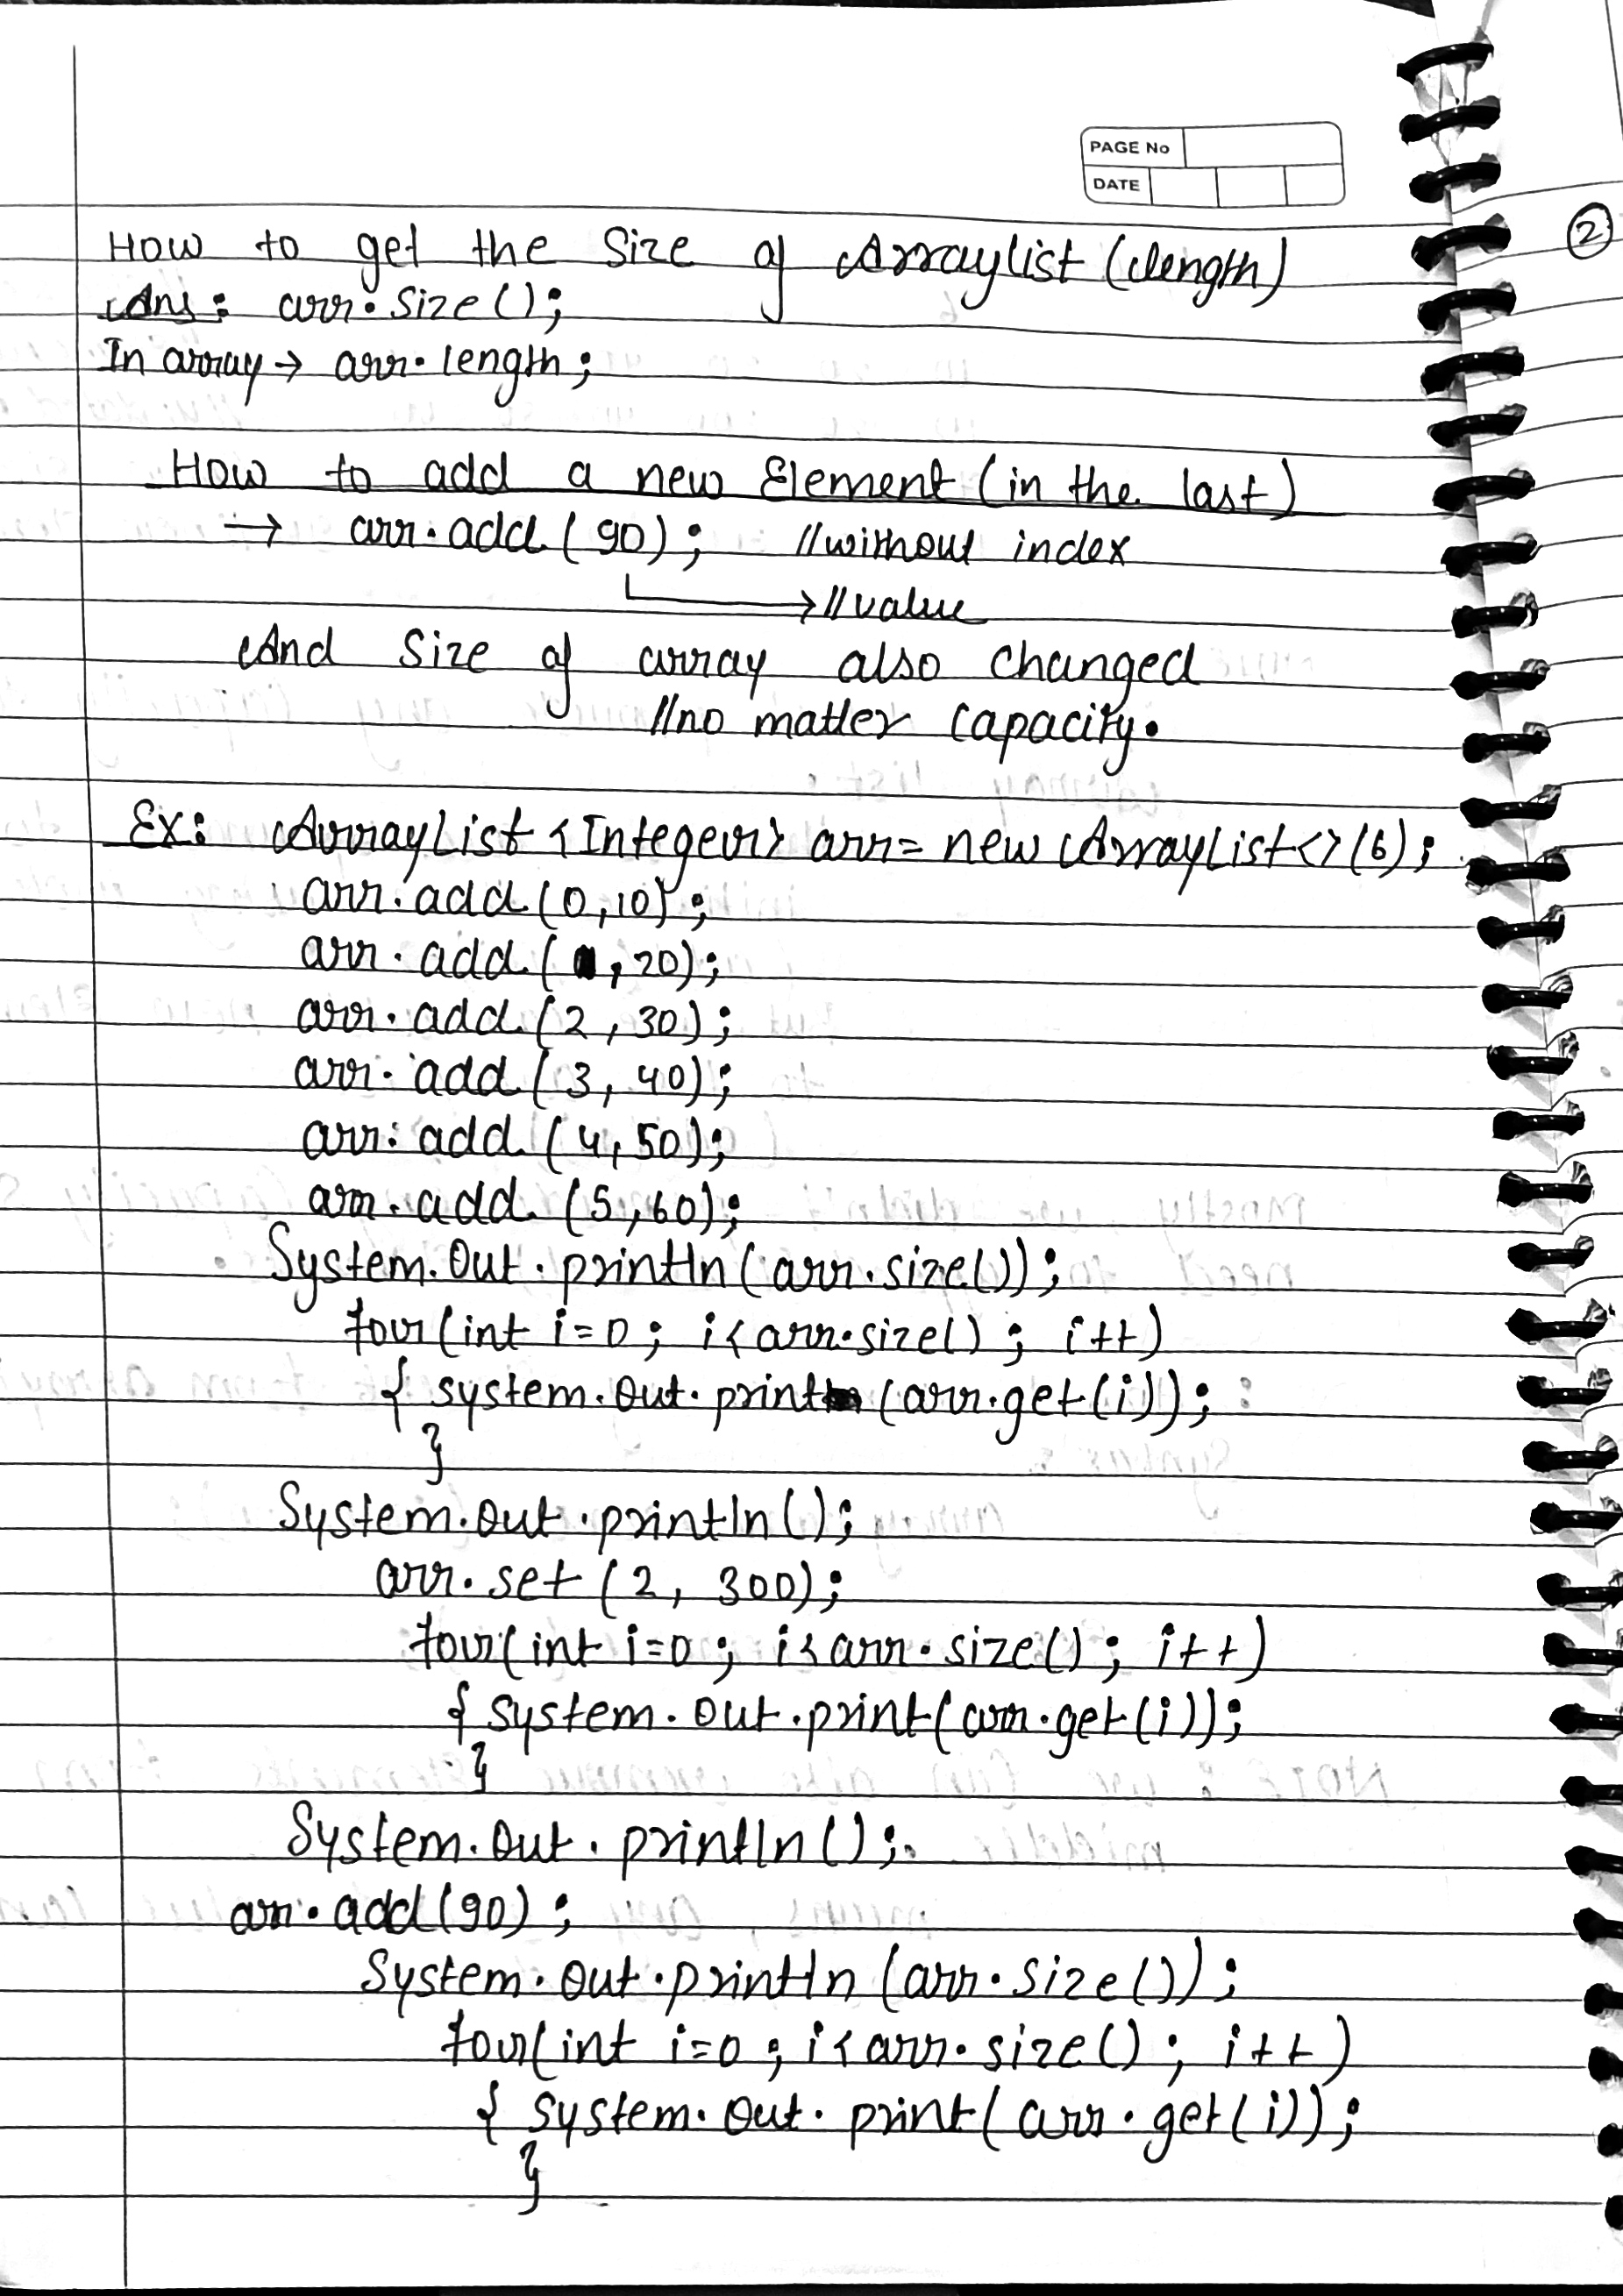 PAGE No
DATE
2
How to get the Size of Arraylist (length)
Ans: arr.size();
In array → arr.length;
How to add a new Element (in the last)
→ arr.add(90); //without index
→ //value
And Size of array also changed
//no matter capacity.
Ex: ArrayList <Integer> arr = new ArrayList<>(6);
arr.add(0,10);
arr.add(1,20);
arr.add(2,30);
arr.add(3,40);
arr.add(4,50);
arr.add(5,60);
System.Out.println(arr.size());
for(int i=0; i<arr.size(); i++)
{ system.out.print(arr.get(i));
}
System.out.println();
arr.set(2, 300);
for(int i=0; i<arr.size(); i++)
{ system.out.print(arr.get(i));
}
System.Out.println();
arr.add(90);
System.out.println(arr.size());
for(int i=0; i<arr.size(); i++)
{ system.out.print(arr.get(i));
}